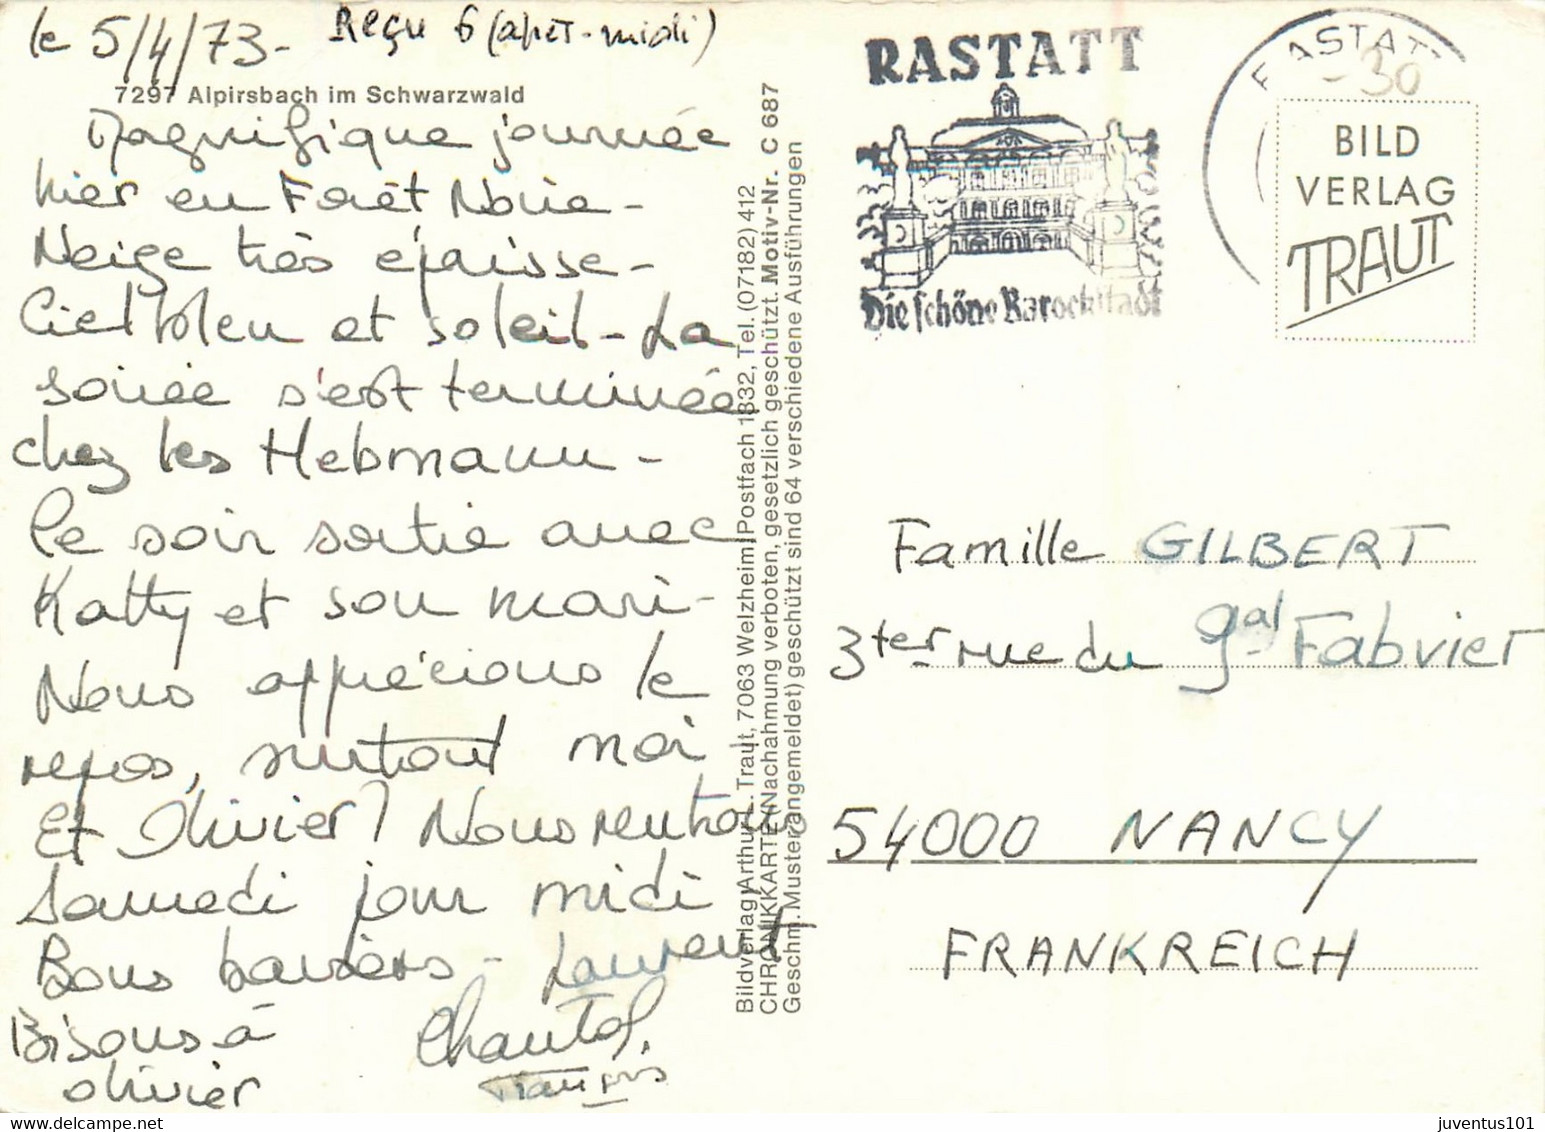 le 5/4/73- Reçu 6 (après-midi)
7297 Alpirsbach im Schwarzwald
Magnifique journée
hier en Forêt Noire-
Neige très épaisse-
Ciel bleu et soleil - La
soirée s'est terminée
chez les Hebmann -
Le soir sortie avec
Katty et son mari -
Nous apprécions le
repos, surtout moi
Et Olivier? Nous rentrons
Samedi jour midi
Bons baisers - Laurent
Bisous à Chantal
olivier François
Bildverlag Arthur L. Traut, 7063 Welzheim, Postfach 1332, Tel. (07182) 412
CHRONIKKARTE (Nachahmung verboten, gesetzlich geschützt. Motiv-Nr. C 687
Geschm. Muster angemeldet) geschützt sind 64 verschiedene Ausführungen
RASTATT
Die schöne Barockstadt
RASTATT
-30
BILD
VERLAG
TRAUT
Famille GILBERT
3ter rue du Gal Fabvier
54000 NANCY
FRANKREICH
juventus101